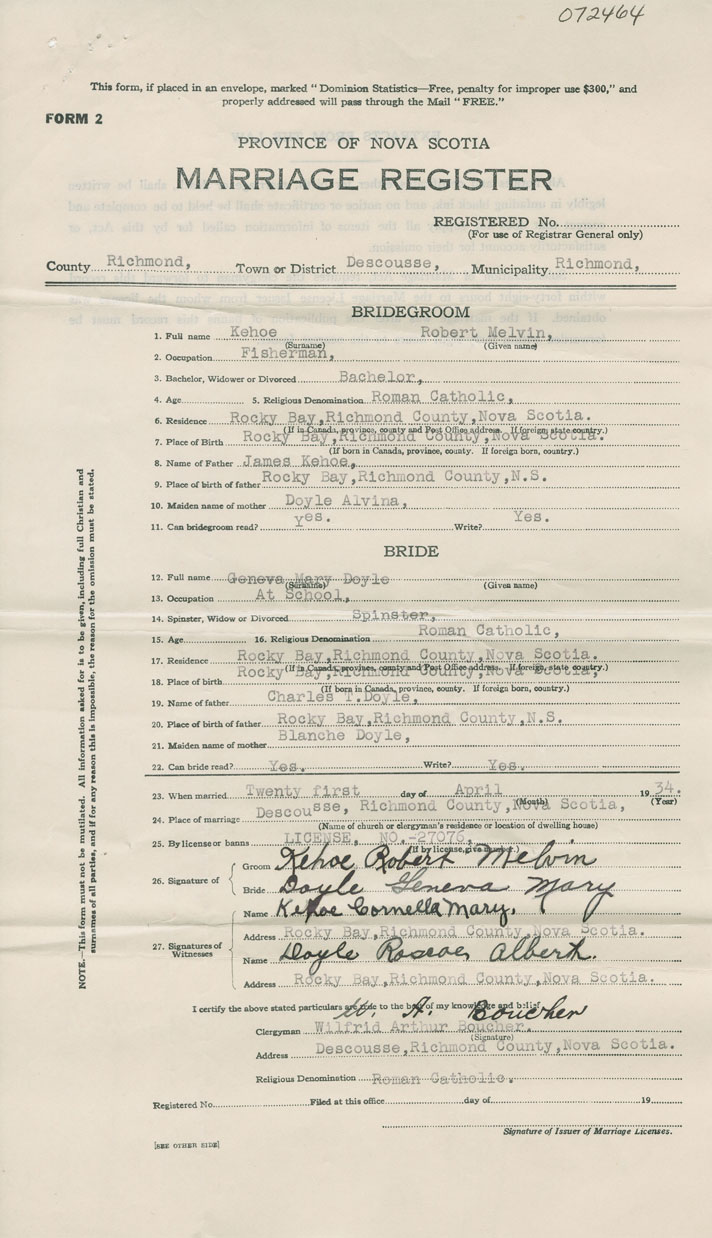 072464
This form, if placed in an envelope, marked "Dominion Statistics—Free, penalty for improper use $300," and
properly addressed will pass through the Mail "FREE."
FORM 2
PROVINCE OF NOVA SCOTIA
MARRIAGE REGISTER
REGISTERED No.
(For use of Registrar General only)
County Richmond, Town or District Descousse, Municipality Richmond,
BRIDEGROOM
1. Full name Kehoe Robert Melvin,
(Surname) (Given name)
2. Occupation Fisherman,
3. Bachelor, Widower or Divorced Bachelor,
4. Age 5. Religious Denomination Roman Catholic,
6. Residence Rocky Bay, Richmond County, Nova Scotia.
(If in Canada, province, county and Post Office address. If foreign, state country.)
7. Place of Birth Rocky Bay, Richmond County, Nova Scotia.
(If born in Canada, province, county. If foreign born, country.)
8. Name of Father James Kehoe,
9. Place of birth of father Rocky Bay, Richmond County, N.S.
10. Maiden name of mother Doyle Alvina,
11. Can bridegroom read? Yes. Write? Yes.
BRIDE
12. Full name Geneva Mary Doyle
(Surname) (Given name)
13. Occupation At School,
14. Spinster, Widow or Divorced Spinster,
15. Age 16. Religious Denomination Roman Catholic,
17. Residence Rocky Bay, Richmond County, Nova Scotia.
(If in Canada, province, county and Post Office address. If foreign, state country.)
18. Place of birth Rocky Bay, Richmond County, Nova Scotia,
(If born in Canada, province, county. If foreign born, country.)
19. Name of father Charles T. Doyle,
20. Place of birth of father Rocky Bay, Richmond County, N.S.
21. Maiden name of mother Blanche Doyle,
22. Can bride read? Yes. Write? Yes.
23. When married Twenty first day of April 1934.
(Month) (Year)
24. Place of marriage Descousse, Richmond County, Nova Scotia,
(Name of church or clergyman's residence or location of dwelling house)
25. By license or banns LICENSE, NO.-27076,
(If by license, give number.)
26. Signature of
Groom Kehoe Robert Melvin
Bride Doyle Geneva Mary
27. Signatures of Witnesses
Name Kehoe Cornella Mary.
Address Rocky Bay, Richmond County, Nova Scotia.
Name Doyle Roscoe Albert.
Address Rocky Bay, Richmond County, Nova Scotia.
I certify the above stated particulars are true to the best of my knowledge and belief.
W. A. Boucher
Clergyman Wilfrid Arthur Boucher.
(Signature)
Address Descousse, Richmond County, Nova Scotia.
Religious Denomination Roman Catholic.
Registered No. Filed at this office day of 19
Signature of Issuer of Marriage Licenses.
[SEE OTHER SIDE]
NOTE.—This form must not be mutilated. All information asked for is to be given, including full Christian and
surnames of all parties, and if for any reason this is impossible, the reason for the omission must be stated.